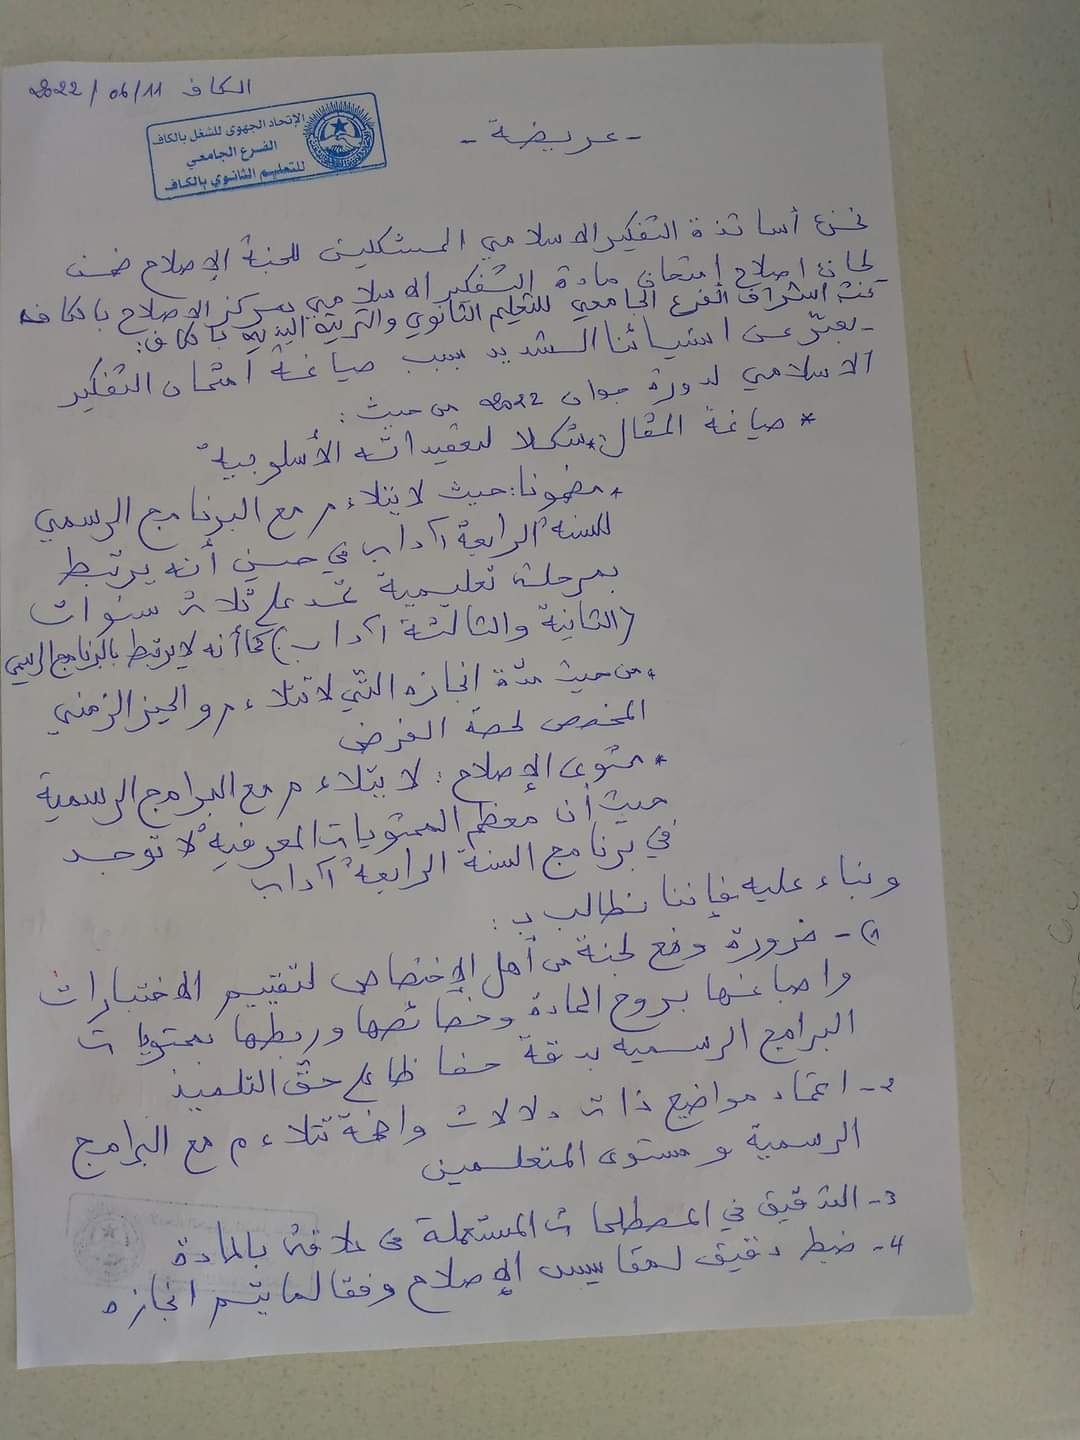 الكاف 2022/06/11
الإتحاد الجهوي للشغل بالكاف
الفرع الجامعي
للتعليم الثانوي بالكاف
- عريضة -
نحن أساتذة التفكير الاسلامي المشكلين للجنة الإصلاح ضمن
لجان اصلاح امتحان مادة التفكير الاسلامي بمركز الاصلاح بالكاف
تحت اشراف الفرع الجامعي للتعليم الثانوي والتربية البدنية بالكاف:
- نعبّر عن استيائنا الشديد بسبب صياغة امتحان التفكير
الاسلامي لدورة جوان 2022 من حيث:
* صياغة المقال: * شكلا لتعقيداته الأسلوبية
* مضمونا: حيث لا يتلاءم مع البرنامج الرسمي
للسنة الرابعة آداب في حين أنه يرتبط
بمرحلة تعليمية تمتد على ثلاث سنوات
(الثانية والثالثة آداب) كما أنه لا يرتبط بالبرنامج الرسمي
* من حيث مدّة انجازه التي لا تتلاءم والحيز الزمني
المخصص لحصة الفرض
* محتوى الإصلاح: لا يتلاءم مع البرامج الرسمية
حيث أن معظم المحتويات المعرفية لا توجد
في برنامج السنة الرابعة آداب
وبناء عليه فإننا نطالب بـ:
1) - ضرورة وضع لجنة من أهل الإختصاص لتقييم الاختبارات
بروح المادة وخصائصها وربطها بمحتويات
البرامج الرسمية بدقة حفاظا على حقّ التلميذ
2- اعتماد مواضيع ذات دلالات واضحة تتلاءم مع البرامج
الرسمية ومستوى المتعلمين
3- التدقيق في المصطلحات المستعملة في علاقة بالمادة
4- ضبط دقيق لمقاييس الإصلاح وفقا لما يتم انجازه